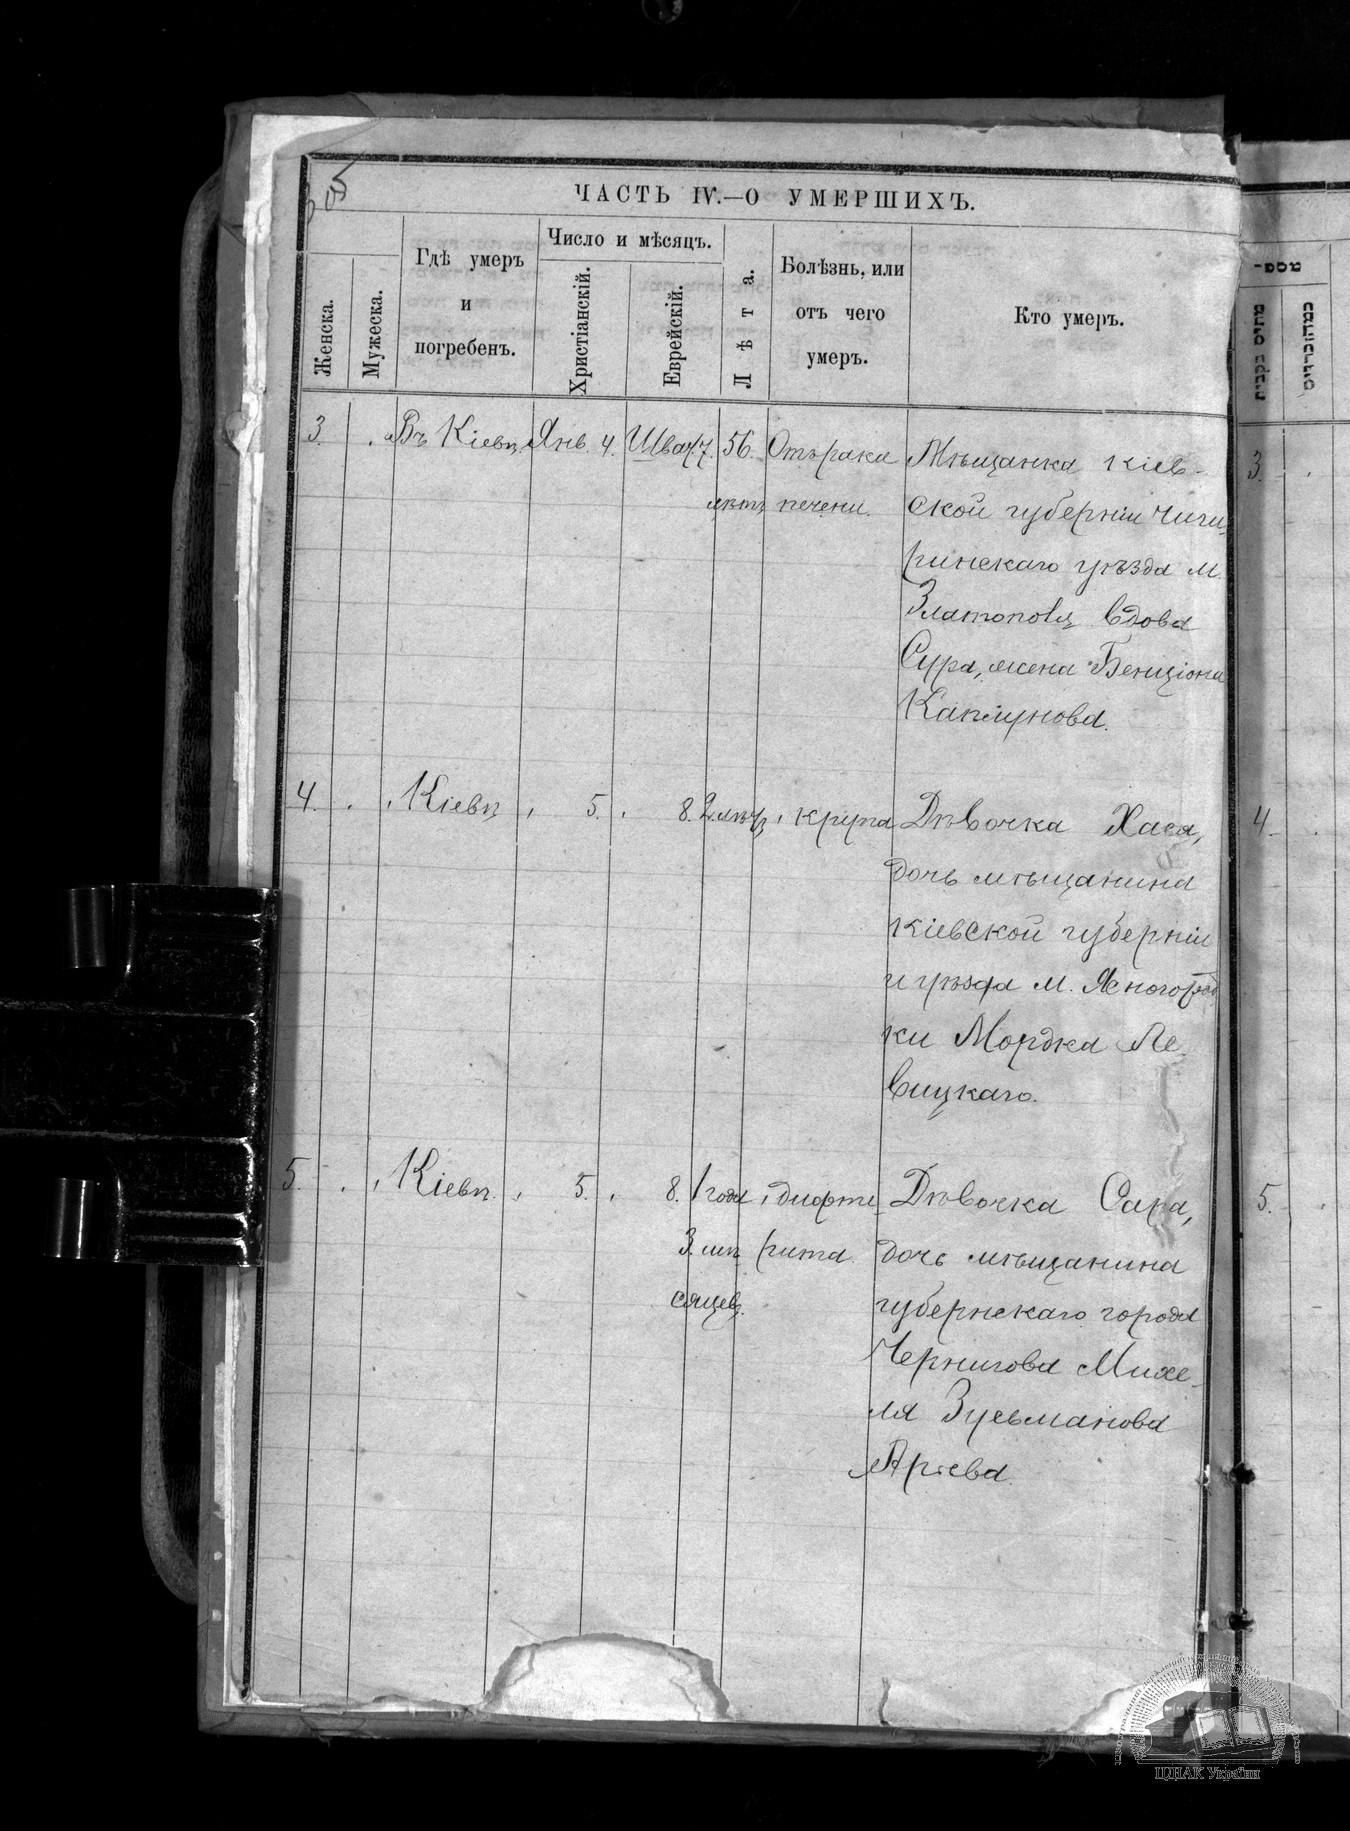 305
ЧАСТЬ IV.—О УМЕРШИХЪ.
Женска.
Мужеска.
Гдѣ умеръ
и
погребенъ.
Число и мѣсяцъ.
Христіанскій.
Еврейскій.
Лѣта.
Болѣзнь, или
отъ чего
умеръ.
Кто умеръ.
3. Въ Кіевѣ Янв. 4. Шват 7. 56. Отъ рака Мѣщанка Кіев-
лѣтъ печени. ской губерніи Чиги-
ринскаго уѣзда м.
Златополя вдова
Сура, жена Бенціона
Каплунова.
4. Кіевѣ 5. 8. 2 лѣтъ крупа Дѣвочка Хася,
дочь мѣщанина
Кіевской губерніи
и уѣзда м. Ясногород
ки Мордка Ле-
вицкаго.
5. Кіевѣ. 5. 8. 1 года дифте- Дѣвочка Сара,
3. мѣ рита дочь мѣщанина
сяцевъ. губернскаго города
Чернигова Михе-
ля Зусьманова
Аріева
3.
4.
5.
ЦДІАК України